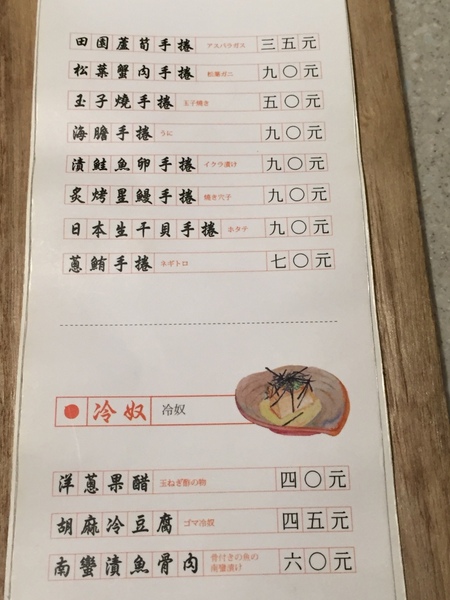 田園蘆筍手捲 アスパラガス 三五元
松葉蟹肉手捲 松葉ガニ 九〇元
玉子燒手捲 玉子焼き 五〇元
海膽手捲 うに 九〇元
漬鮭魚卵手捲 イクラ漬け 九〇元
炙烤星鰻手捲 焼き穴子 九〇元
日本生干貝手捲 ホタテ 九〇元
蔥鮪手捲 ネギトロ 七〇元
冷奴 冷奴
洋蔥果醋 玉ねぎ酢の物 四〇元
胡麻冷豆腐 ゴマ冷奴 四五元
南蠻漬魚骨肉 骨付きの魚の南蛮漬け 六〇元